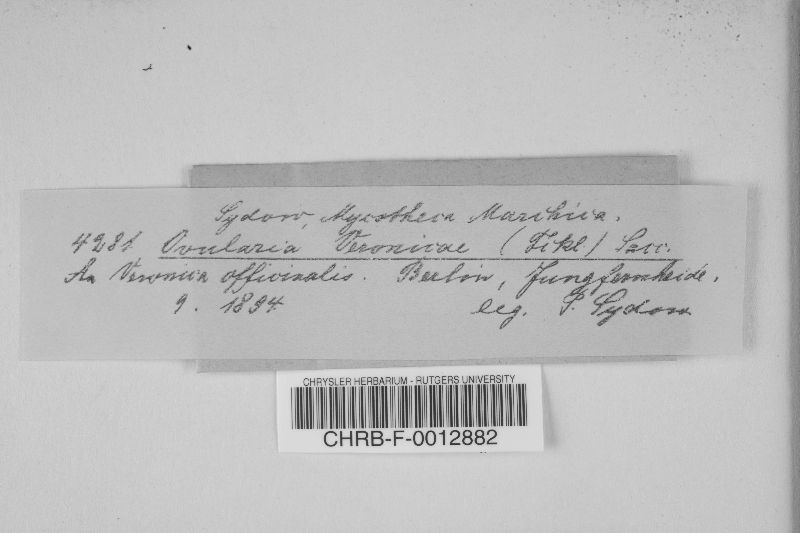 Sydow, Mycotheca Marchica.
4281 Ovularia Veronicae (Fckl.) Sacc.
An Veronica officinalis. Berlin, Jungfernheide.
9. 1894. leg. P. Sydow
CHRYSLER HERBARIUM - RUTGERS UNIVERSITY
CHRB-F-0012882